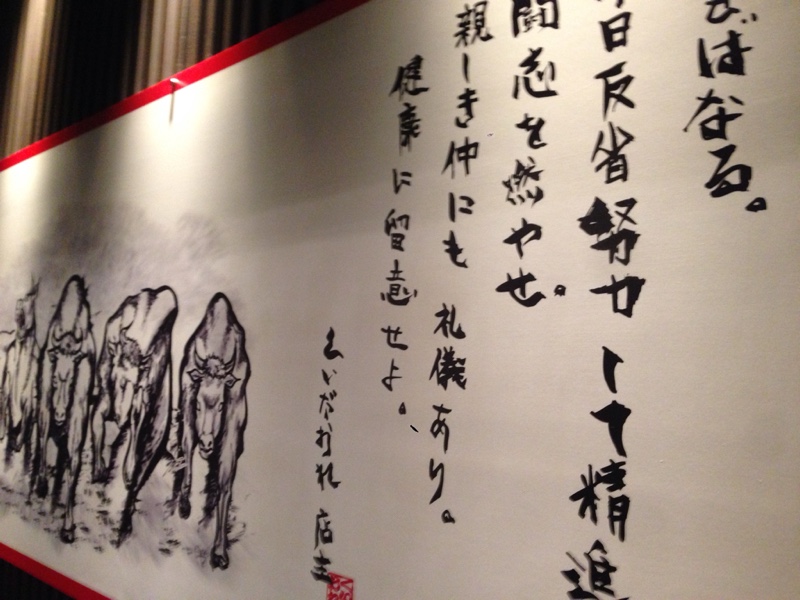 ばなる。
日反省努力して精進
闘志を燃やせ。
親しき仲にも礼儀あり。
健康に留意せよ。
くいだおれ 店主